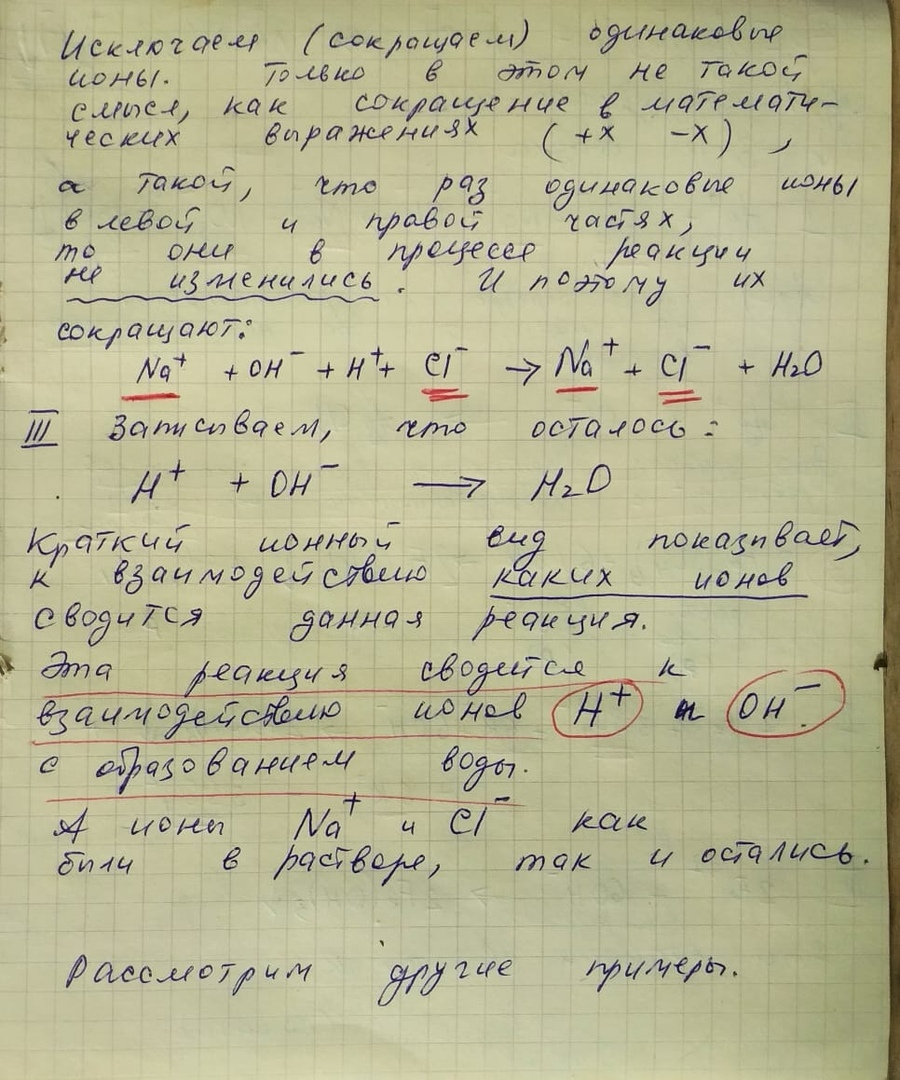 Исключаем (сокращаем) одинаковые
ионы. Только в этом не такой
смысл, как сокращение в математи-
ческих выражениях (+x -x),
а такой, что раз одинаковые ионы
в левой и правой частях,
то они в процессе реакции
не изменились. И поэтому их
сокращают:
Na⁺ + OH⁻ + H⁺ + Cl⁻ → Na⁺ + Cl⁻ + H₂O
III Записываем, что осталось:
H⁺ + OH⁻ → H₂O
Краткий ионный вид показывает,
к взаимодействию каких ионов
сводится данная реакция.
Эта реакция сводится к
взаимодействию ионов H⁺ и OH⁻
с образованием воды.
А ионы Na⁺ и Cl⁻ как
были в растворе, так и остались.
Рассмотрим другие примеры.